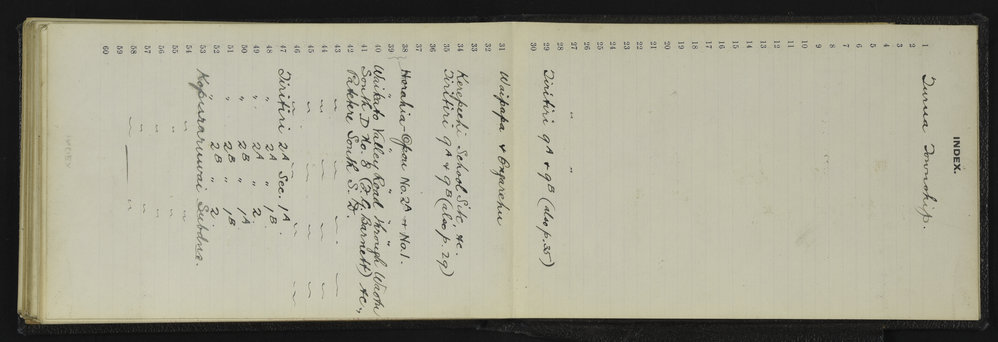 INDEX.
1 Turua Township.
2
3
4
5
6
7
8
9
10
11
12
13
14
15
16
17
18
19
20
21
22
23
24
25
26
27 " "
28
29 Tiritiri 9A & 9B (also p. 35)
30
31 Waipapa &
32
33
34 Kerepeehi School Site, &c.
35 Tiritiri 9A & 9B (also p. 29)
36
37
38 Horahia-Opou No. 2A & No. 1.
39 " "
40 Waikato Valley Road through Waotu
41 South D No. 8 (F. G. Barnett) &c.,
42 Patetere South S. D.
43
44
45
46
47 Tiritiri 2A Sec. 1A.
48 " 2A " 1B.
49 " 2A " 2.
50 " 2B " 1A
51 " 2B " 1B
52 " 2B " 2.
53 Kopuraruwai Subdns.
54
55
56
57
58
59
60
INDEX